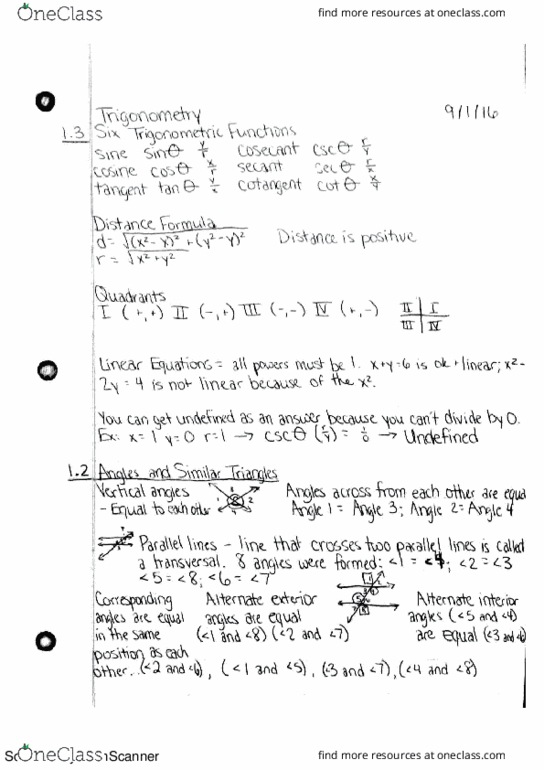 OneClass
find more resources at oneclass.com
Trigonometry 9/1/16
1.3 Six Trigonometric Functions
sine sinθ y/r cosecant cscθ r/y
cosine cosθ x/r secant secθ r/x
tangent tanθ y/x cotangent cotθ x/y
Distance Formula
d = √(x²-x)² + (y²-y)² Distance is positive
r = √x²+y²
Quadrants
I (+,+) II (-,+) III (-,-) IV (+,-) II I
III IV
Linear Equations = all powers must be 1. x+y=6 is ok + linear; x²-
2y = 4 is not linear because of the x².
You can get undefined as an answer because you can't divide by 0.
Ex: x=1 y=0 r=1 → cscθ (r/y) = 1/0 → Undefined
1.2 Angles and Similar Triangles
Vertical angles Angles across from each other are equal
- Equal to each other Angle 1 = Angle 3; Angle 2 = Angle 4
Parallel lines - line that crosses two parallel lines is called
a transversal. 8 angles were formed: <1 = <4; <2 = <3
<5 = <8; <6 = <7
Corresponding Alternate exterior Alternate interior
angles are equal angles are equal angles (<5 and <4)
in the same (<1 and <8) (<2 and <7) are equal (<3 and <6)
position as each
other...(<2 and <6), (<1 and <5), (<3 and <7), (<4 and <8)
OneClass
Scanner
find more resources at oneclass.com